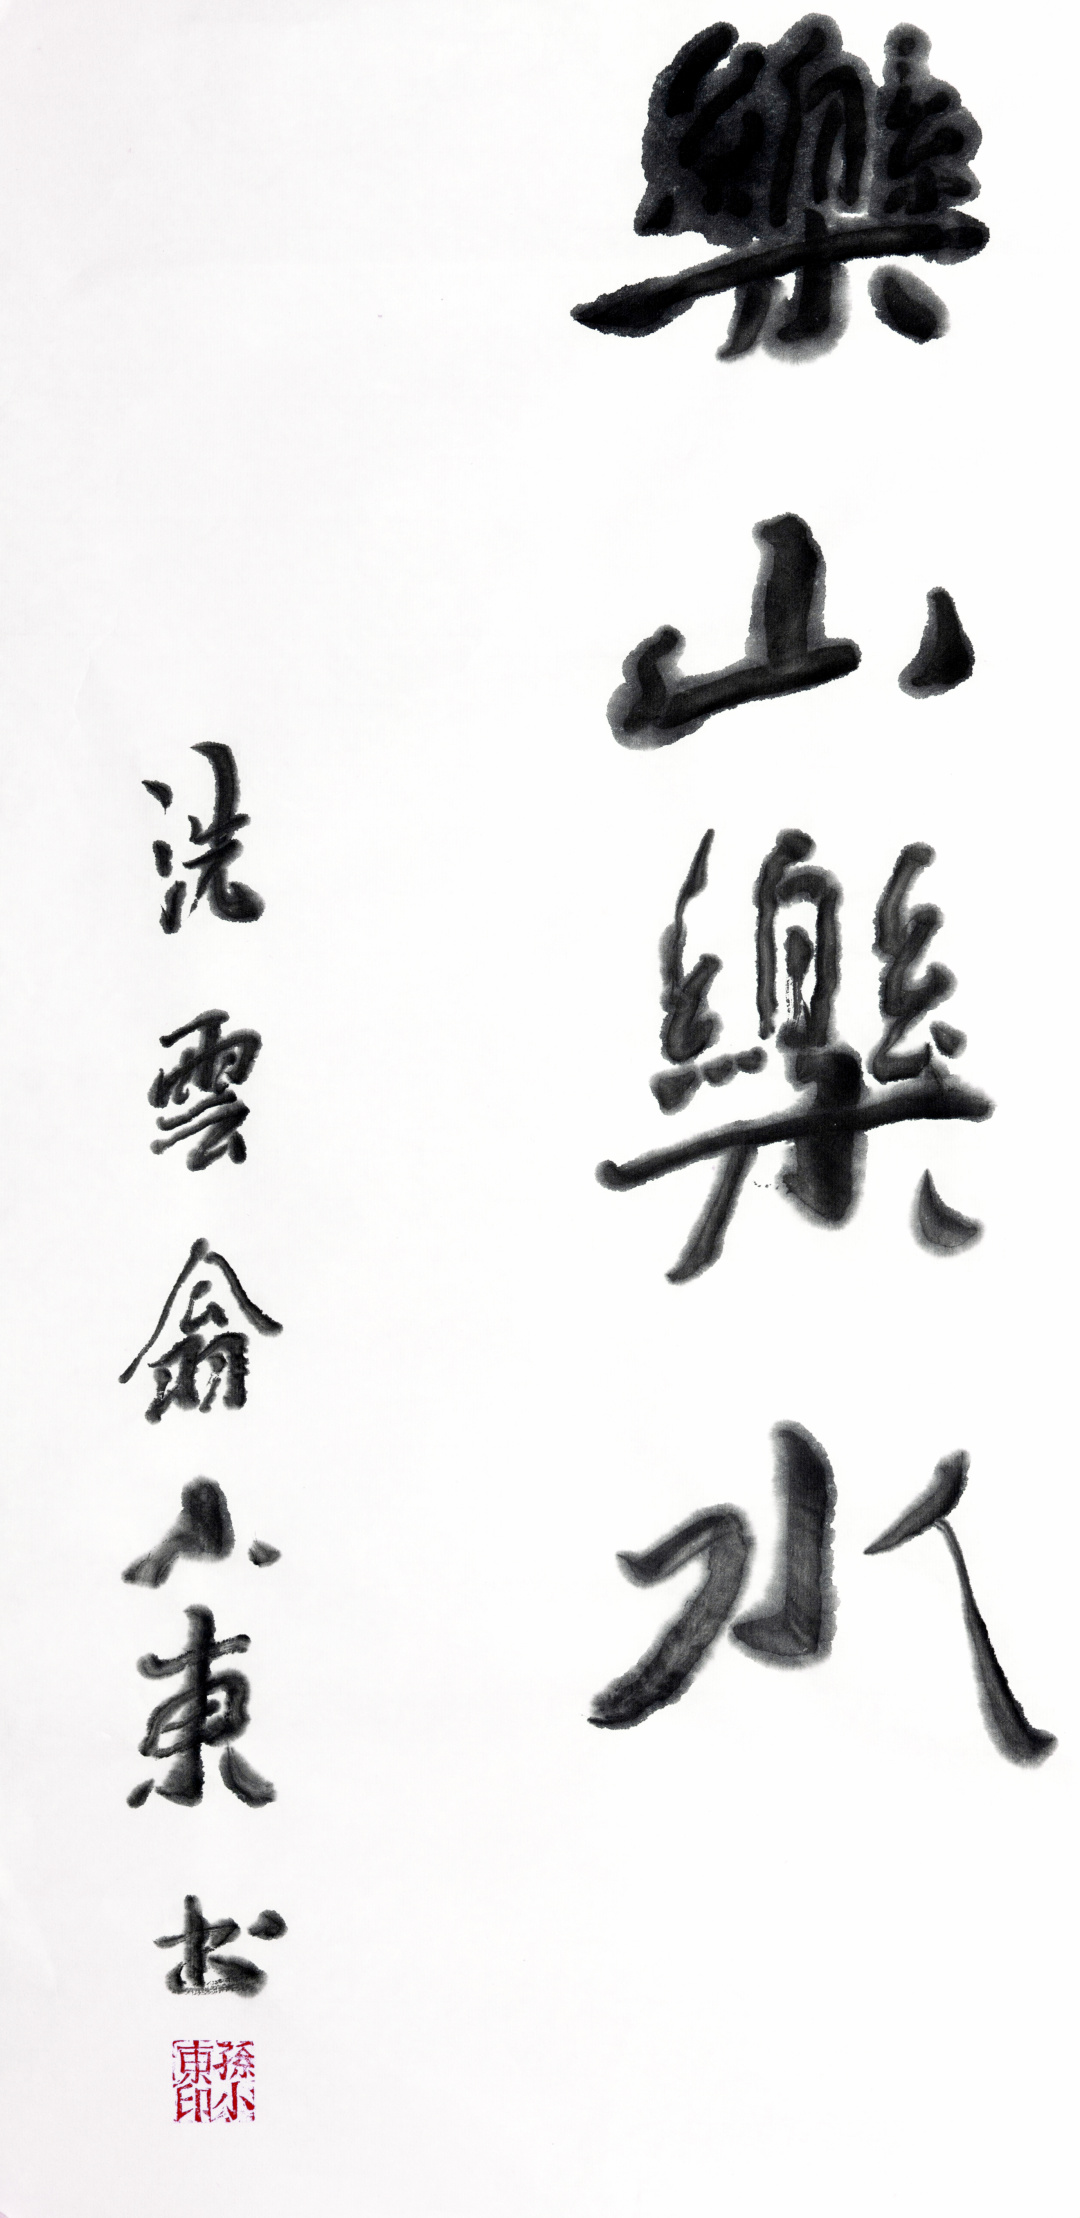 樂山樂水
洗雲翁小東书
孫小東印